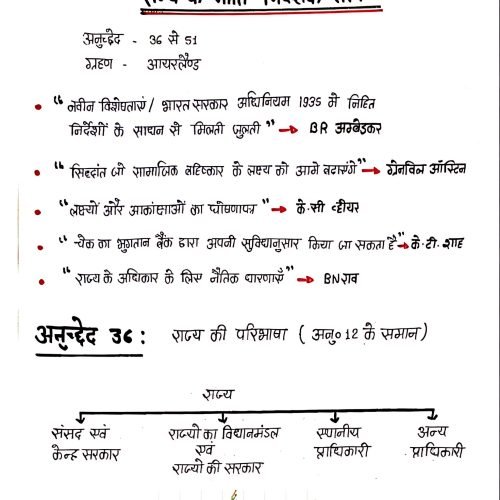 राज्य के नीति निदेशक तत्व
अनुच्छेद - 36 से 51
ग्रहण - आयरलैण्ड
• “नवीन विशेषताएं / भारत सरकार अधिनियम 1935 मे निहित
निर्देशों के साधन से मिलती जुलती” → BR अम्बेडकर
• “सिद्दांत जो सामाजिक बहिष्कार के लक्ष्य को आगे बढाएंगे” → ग्रेनविल ऑस्टिन
• “लक्ष्यों और आकांक्षाओं का घोषणापत्र” → के.सी व्हीयर
• “चेक का भुगतान बैंक द्वारा अपनी सुविधानुसार किया जा सकता है” → के.टी.शाह
• “राज्य के अधिकार के लिए नैतिक धारणाएँ” → BN राव
अनुच्छेद 36 : राज्य की परिभाषा ( अनु० 12 के समान )
राज्य
संसद एवं
केन्द्र सरकार
राज्यों का विधानमंडल
एवं
राज्यों की सरकार
स्थानीय
प्राधिकारी
अन्य
प्राधिकारी